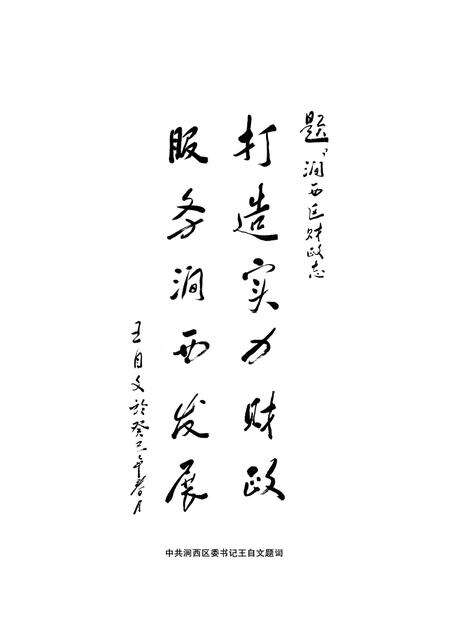 题《涧西区财政志》
打造实力财政
服务涧西发展
王自文於癸巳年春月
中共涧西区委书记王自文题词